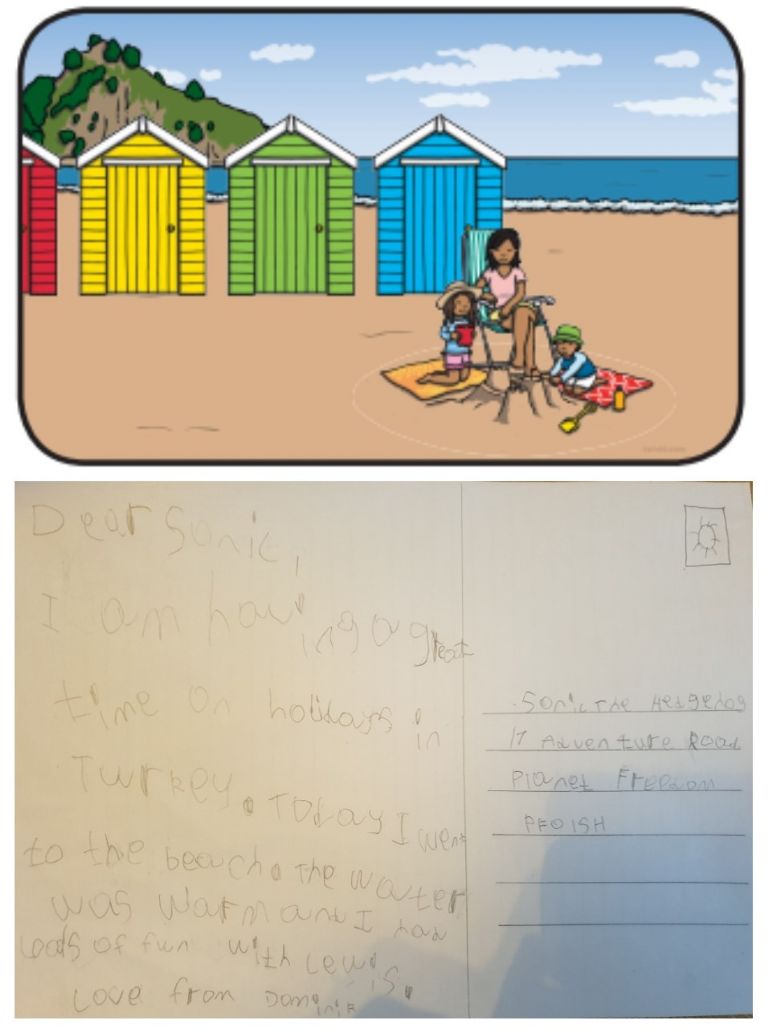 Dear Sonic,
I am having a great
time on holidays in
Turkey. Today I went
to the beach. The water
was warm and I had
loads of fun with Lewis.
Love from Dominik
Sonic The Hedgehog
17 Adventure Road
Planet Freedom